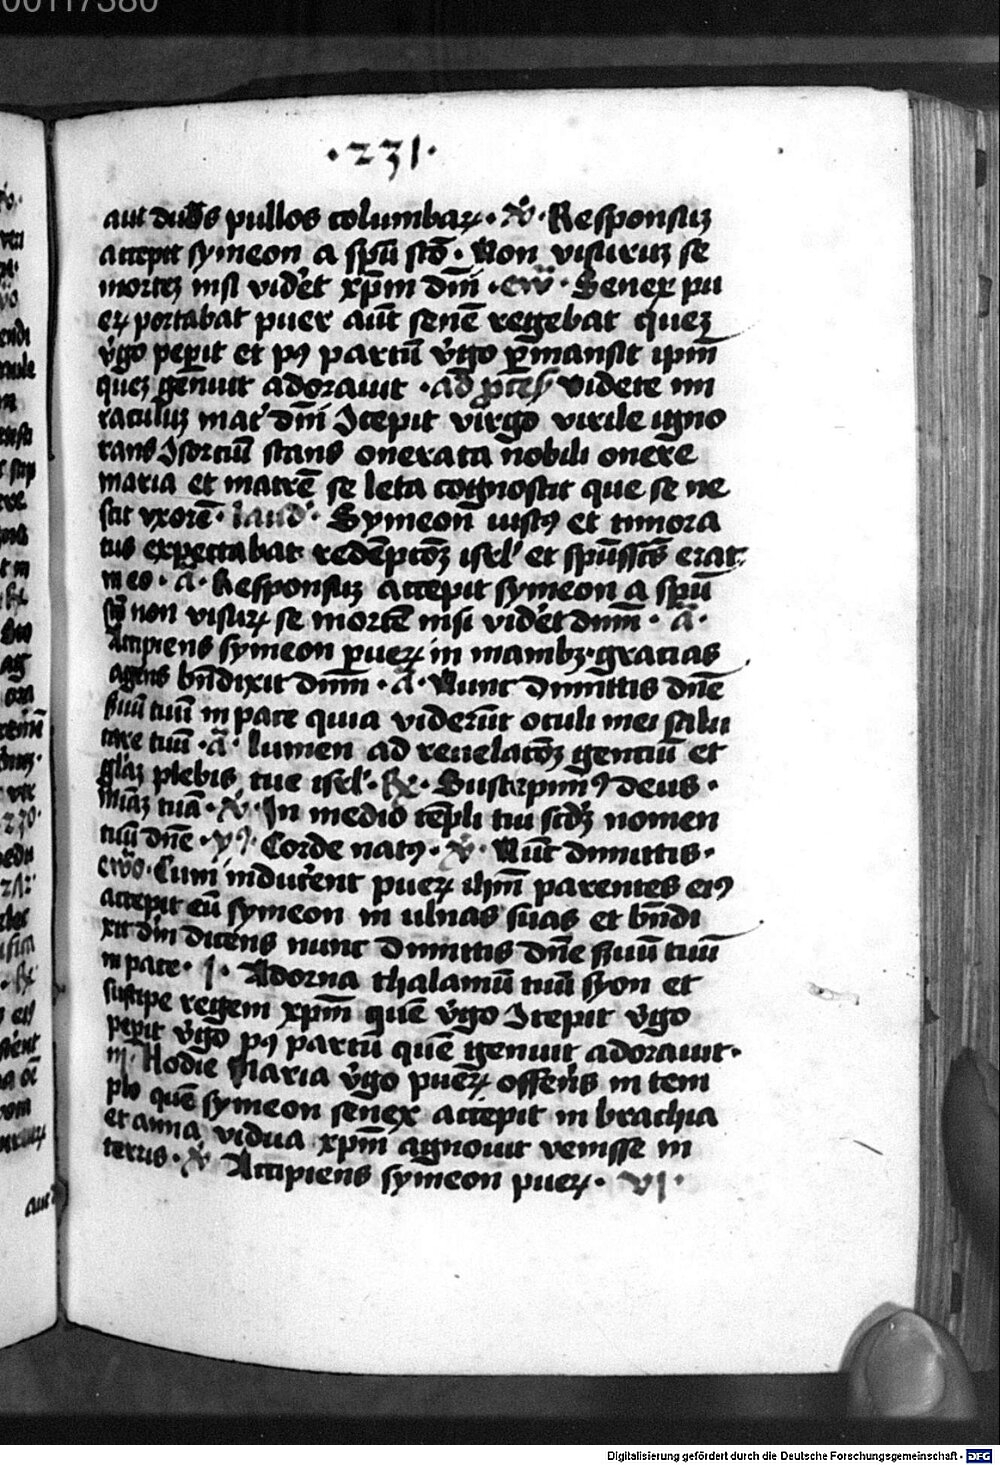 00117380
·231·
aut duos pullos columbaꝝ · ℣ · Responsuꝫ
accepit symeon a spū sc̄o · Non visuruꝫ se
morteꝫ nisi vider̄et xp̄m dn̄i · euō · Senex pu
eꝝ portabat puer aūt senē regebat queꝫ
v̓go peperit et pꝰ partū v̓go ꝑmansit ipm̄
queꝫ genuit adorauit · ad pͥces videte mi
raculuꝫ mat̓ dn̄i Ↄcepit virgo virile igno
rans Ↄsorciū stans onerata nobili onere
maria et matrē se leta cognoscit que se ne
scit vxorē · laud̓ · Symeon iustꝰ et timora
tus expectabat redēpcōꝫ isrl̓ et spūsscūs erat
in eo · ā · Responsuꝫ accepit symeon a spū
sc̄o non visuꝝ se mortē nisi vider̓et dnm̄ · ā ·
Accipiens symeon pueꝝ in manibꝫ · gracias
agens bn̄dixit dnm̄ · ā · Nunc dimittis dn̄e
seruū tuū in pace quia viderūt oculi mei salu
tare tuū · ā · lumen ad reuelacōꝫ genciū et
gl̄aꝫ plebis tue isrl̓ · ℟ · Suscepimꝰ deus ·
mīaꝫ tuā · ℣ · In medio tēpli tui scd̓ꝫ nomen
tuū dn̄e · yꝰ · Corde natꝰ · ℣ · Nūc dimittis ·
euō · Cum inducer̓ent pueꝝ ihm̄ parentes eiꝰ
accepit eū symeon in ulnas suas et bn̄di
xit dm̄ dicens nunc dimittis dn̄e seruū tuū
in pace · j · Adorna thalamū tuū syon et
suscipe regem xpm̄ quē v̓go Ↄcepit v̓go
peperit v̓go pꝰ partū quē genuit adorauit ·
iij · Hodie Maria v̓go pueꝝ offerēs in tem
plo quē symeon senex accepit in brachia
et anna vidua xpm̄ agnouit venisse in
terris · ℣ Accipiens symeon pueꝝ · vj ·
Digitalisierung gefördert durch die Deutsche Forschungsgemeinschaft - DFG